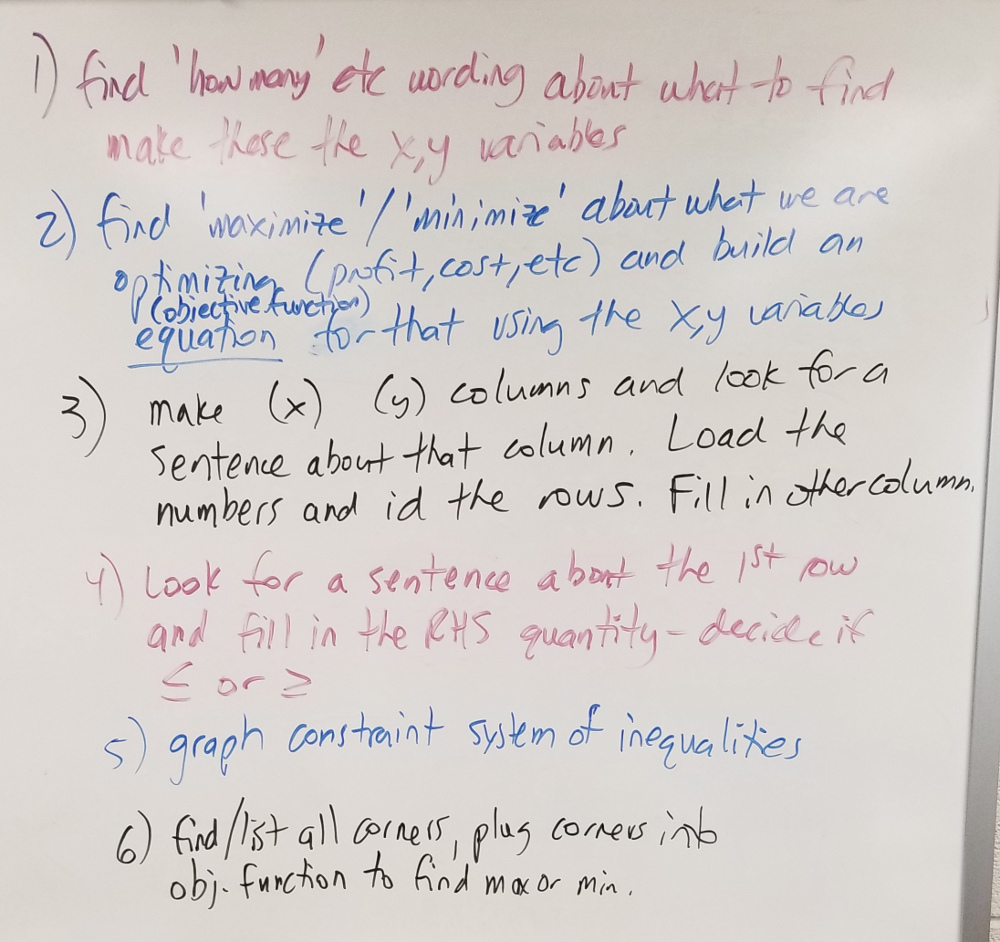 1) find 'how many' etc wording about what to find
make these the x,y variables
2) find 'maximize'/'minimize' about what we are
optimizing (profit, cost, etc) and build an
(objective function)
equation for that using the x,y variables
3) make (x) (y) columns and look for a
sentence about that column. Load the
numbers and id the rows. Fill in other column.
4) Look for a sentence about the 1st row
and fill in the RHS quantity - decide if
≤ or ≥
5) graph constraint system of inequalities
6) find/list all corners, plug corners into
obj. function to find max or min.